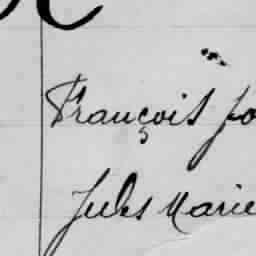 François
Jules Marie